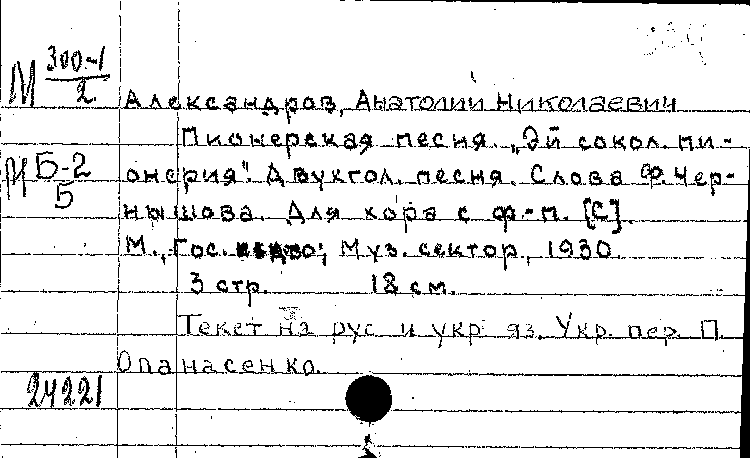 М 300-1/2
Александров, Анатолий Николаевич
Пионерская песня. „Эй сокол. пи-
М Б-2/5
онерия". Двухгол. песня. Слова Ф. Чер-
нышова. Для хора с ф.-п. [С].
М., Гос. изд-во, Муз. сектор, 1930.
3 стр. 18 см.
Текст на рус и укр яз. Укр. пер. П.
Опанасенко.
24221